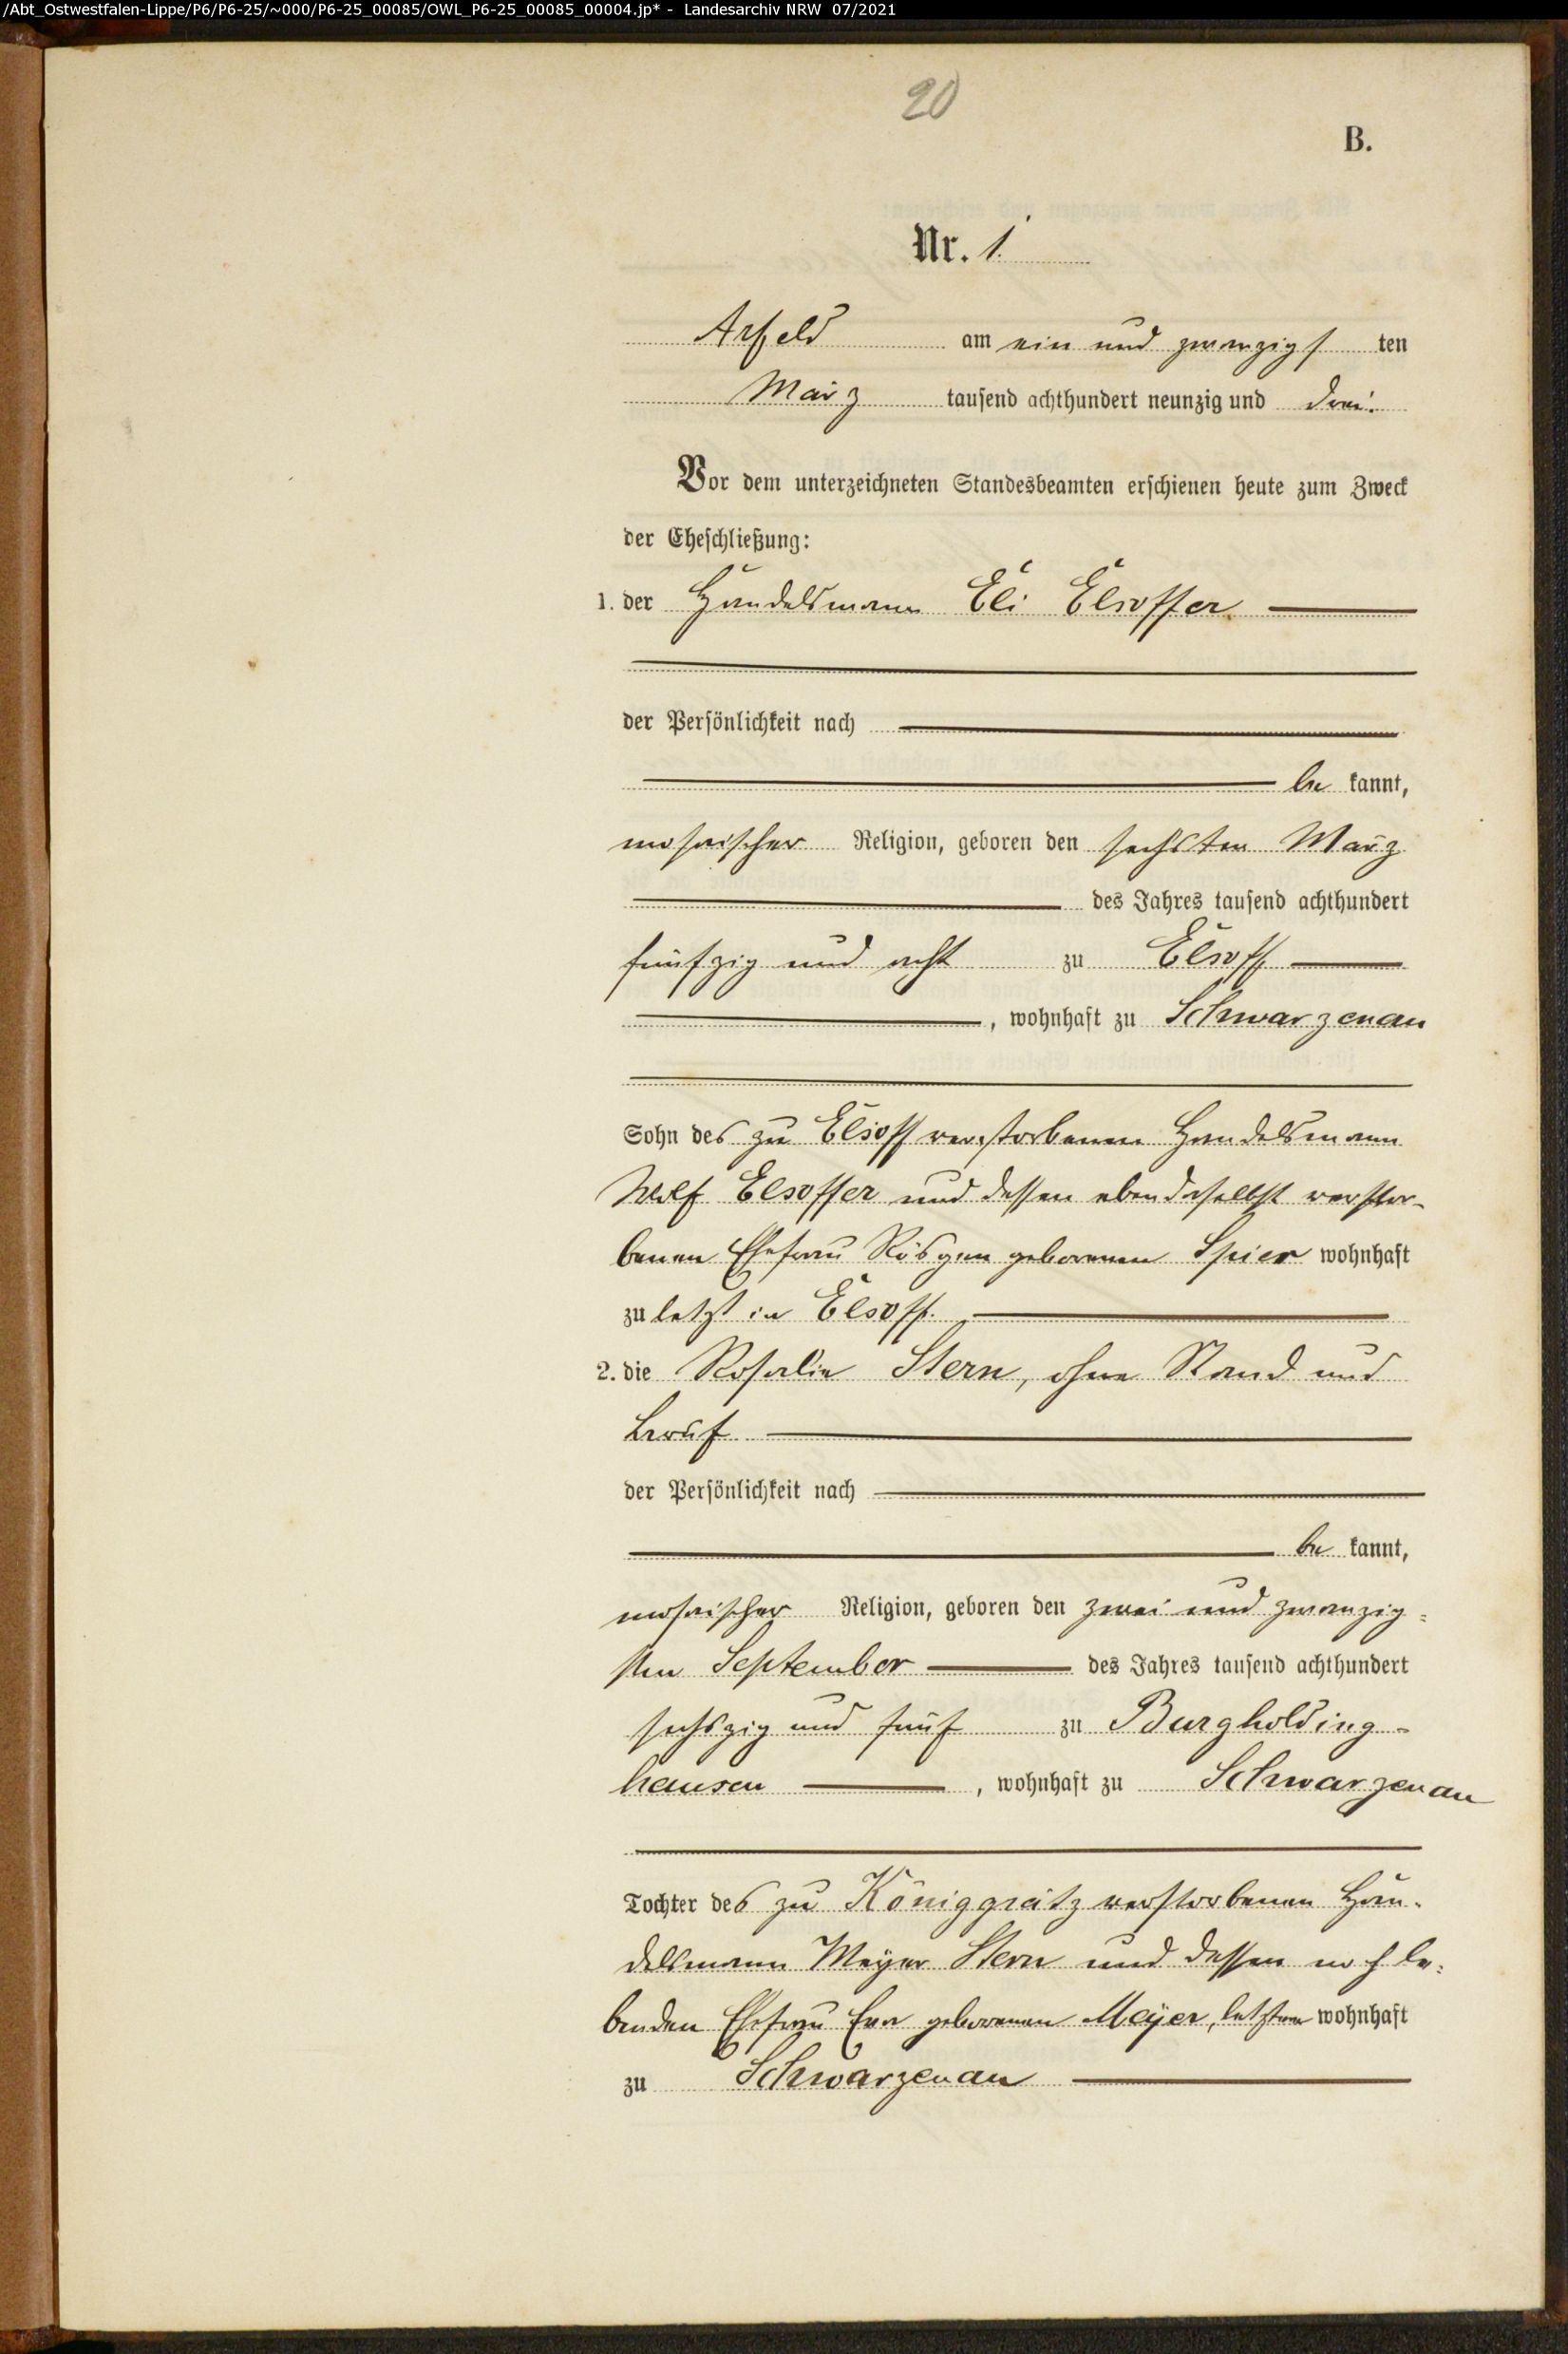 /Abt_Ostwestfalen-Lippe/P6/P6-25/~000/P6-25_00085/OWL_P6-25_00085_00004.jp* - Landesarchiv NRW 07/2021
20
B.
Nr. 1.
Arfeld am ein und zwanzigs ten
März tausend achthundert neunzig und drei.
Vor dem unterzeichneten Standesbeamten erschienen heute zum Zweck
der Eheschließung:
1. der Handelsmann Eli Elsoffer
der Persönlichkeit nach
be kannt,
mosaischer Religion, geboren den sechsten März
des Jahres tausend achthundert
fünfzig und acht zu Elsoff
, wohnhaft zu Schwarzenau
Sohn des zu Elsoff verstorbenen Handelsmann
Wolf Elsoffer und dessen ebendaselbst verstor-
benen Ehefrau Rösgen geborenen Spier wohnhaft
zu letzt in Elsoff.
2. die Rosalie Stern, ohne Stand und
Beruf
der Persönlichkeit nach
be kannt,
mosaischer Religion, geboren den zwei und zwanzig-
sten September des Jahres tausend achthundert
sechszig und fünf zu Burgholding-
hausen , wohnhaft zu Schwarzenau
Tochter des zu Königgrätz verstorbenen Han-
delsmann Meyer Stern und dessen noch le-
benden Ehefrau Eva geborenen Meyer, letztere wohnhaft
zu Schwarzenau